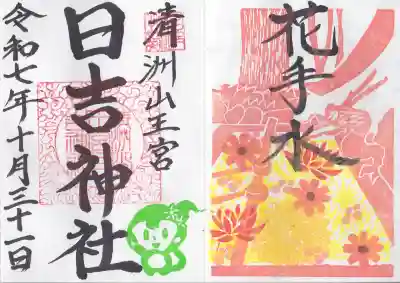 花手水
清洲山王宮
日吉神社
令和七年十月三十一日